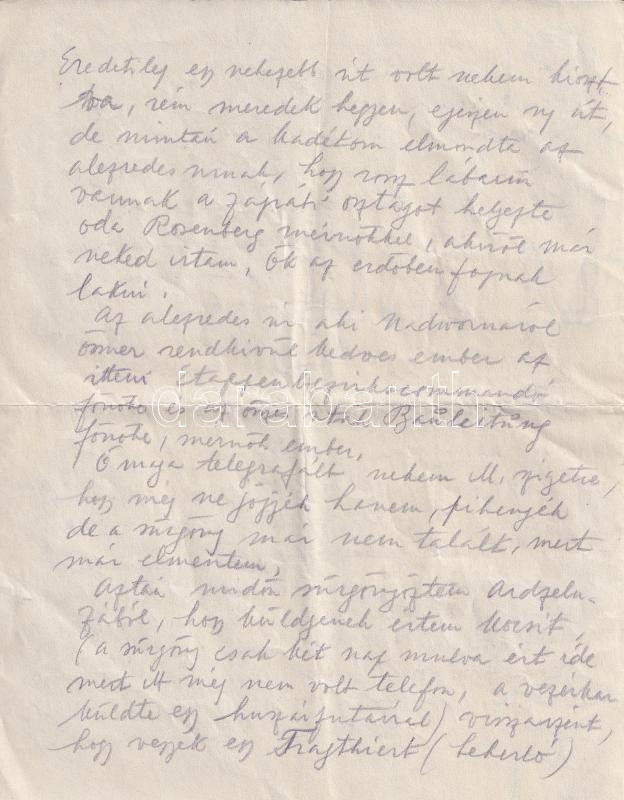 Eredetileg egy nehezebb út volt nekem kioszt
va, rém meredek hegyen, egészen uj út,
de miután a kadétom elmondta az
alezredesnek, hogy rossz lábaim
vannak a osztagot helyezte
oda Rosenberg mérnökkel, akiről már
neked irtam, Ők az erdőben fognak
lakni.
Az alezredes úr aki Nadwornaról
ösmer rendkivül kedves ember az
itteni Etappenbezirkscommandó
főnöke és az Bauleitung
főnöke, mernök ember,
Ő maga telegrafált nekem M. szigetre,
hogy még ne jöjjek hanem pihenjek
de a sürgöny már nem talált, mert
már elmentem,
Aztán midőn sürgönyöztem Ardzelu-
zából, hogy küldjenek értem kocsit,
(a sürgöny csak két nap mulva ért ide
mert itt még nem volt telefon, a vezérkar
küldte egy huszárfutárral) visszaizent,
hogy vegyek egy Tragthiert (teherló)
darabanth